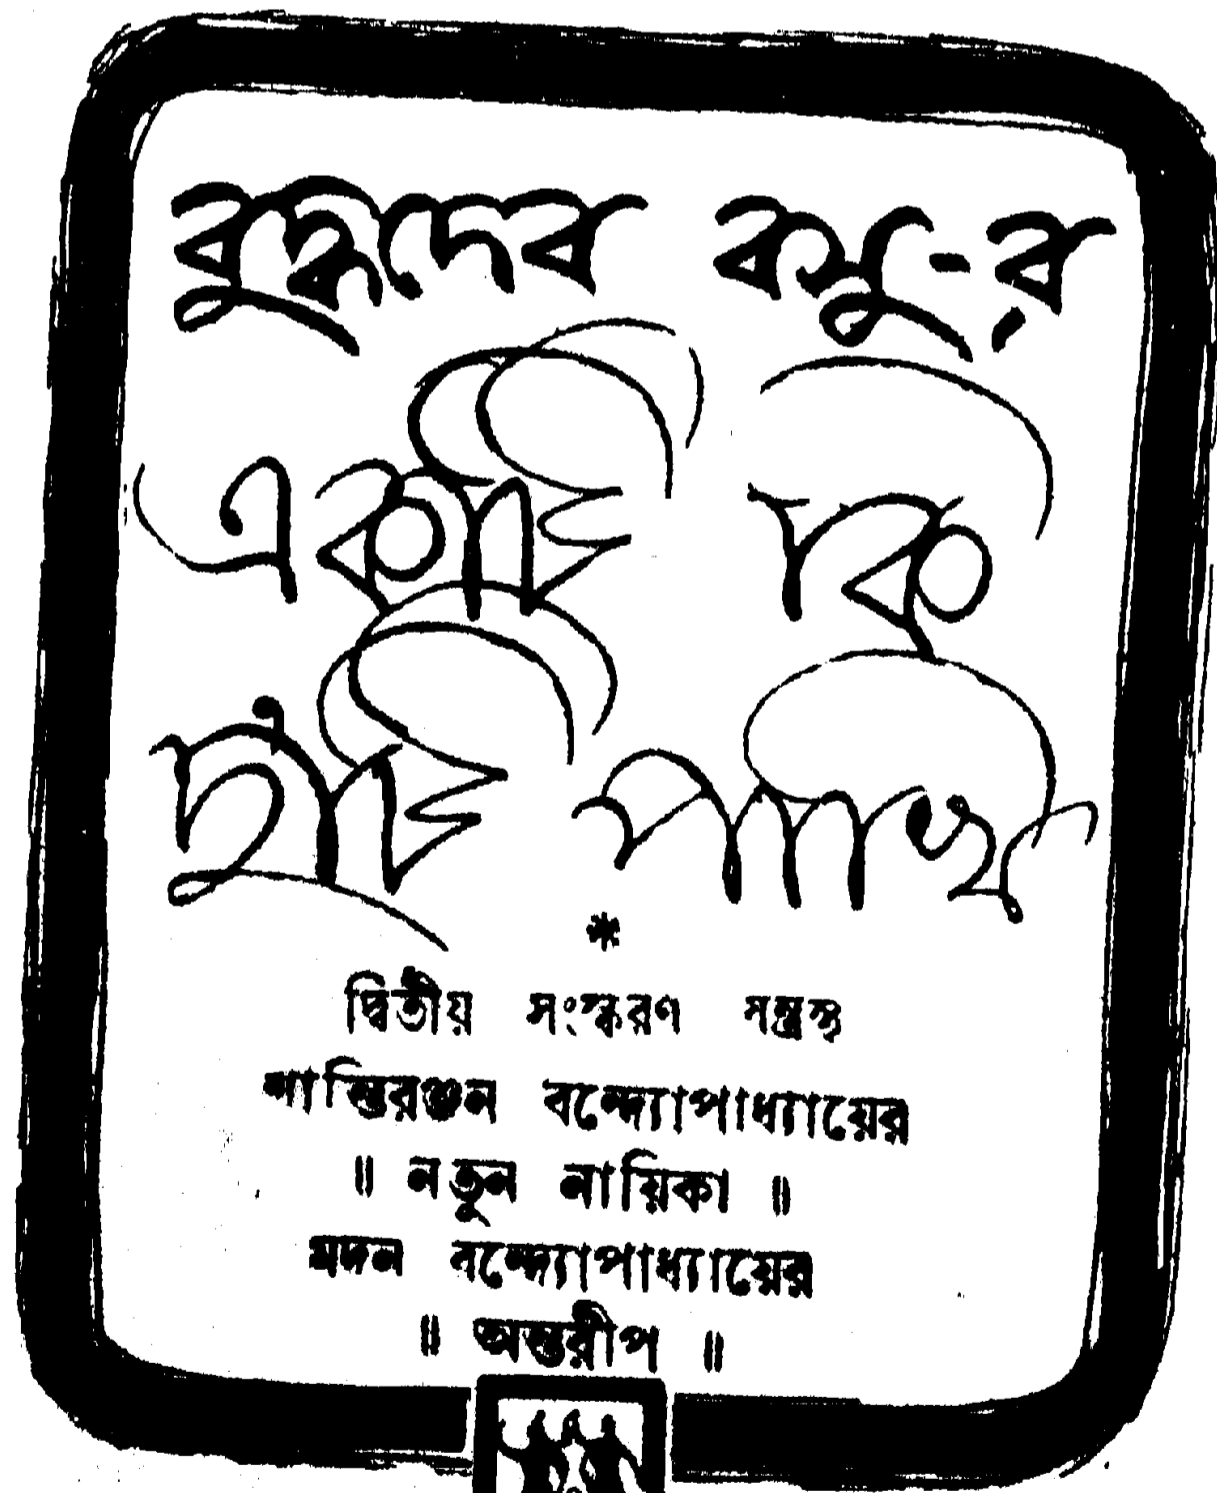 বুদ্ধদেব বসু-র
একটি কি
দুটি পাখি
*
দ্বিতীয় সংস্করণ যন্ত্রস্থ
শান্তিরঞ্জন বন্দ্যোপাধ্যায়ের
॥ নতুন নায়িকা ॥
মদন বন্দ্যোপাধ্যায়ের
॥ অন্তরীপ ॥